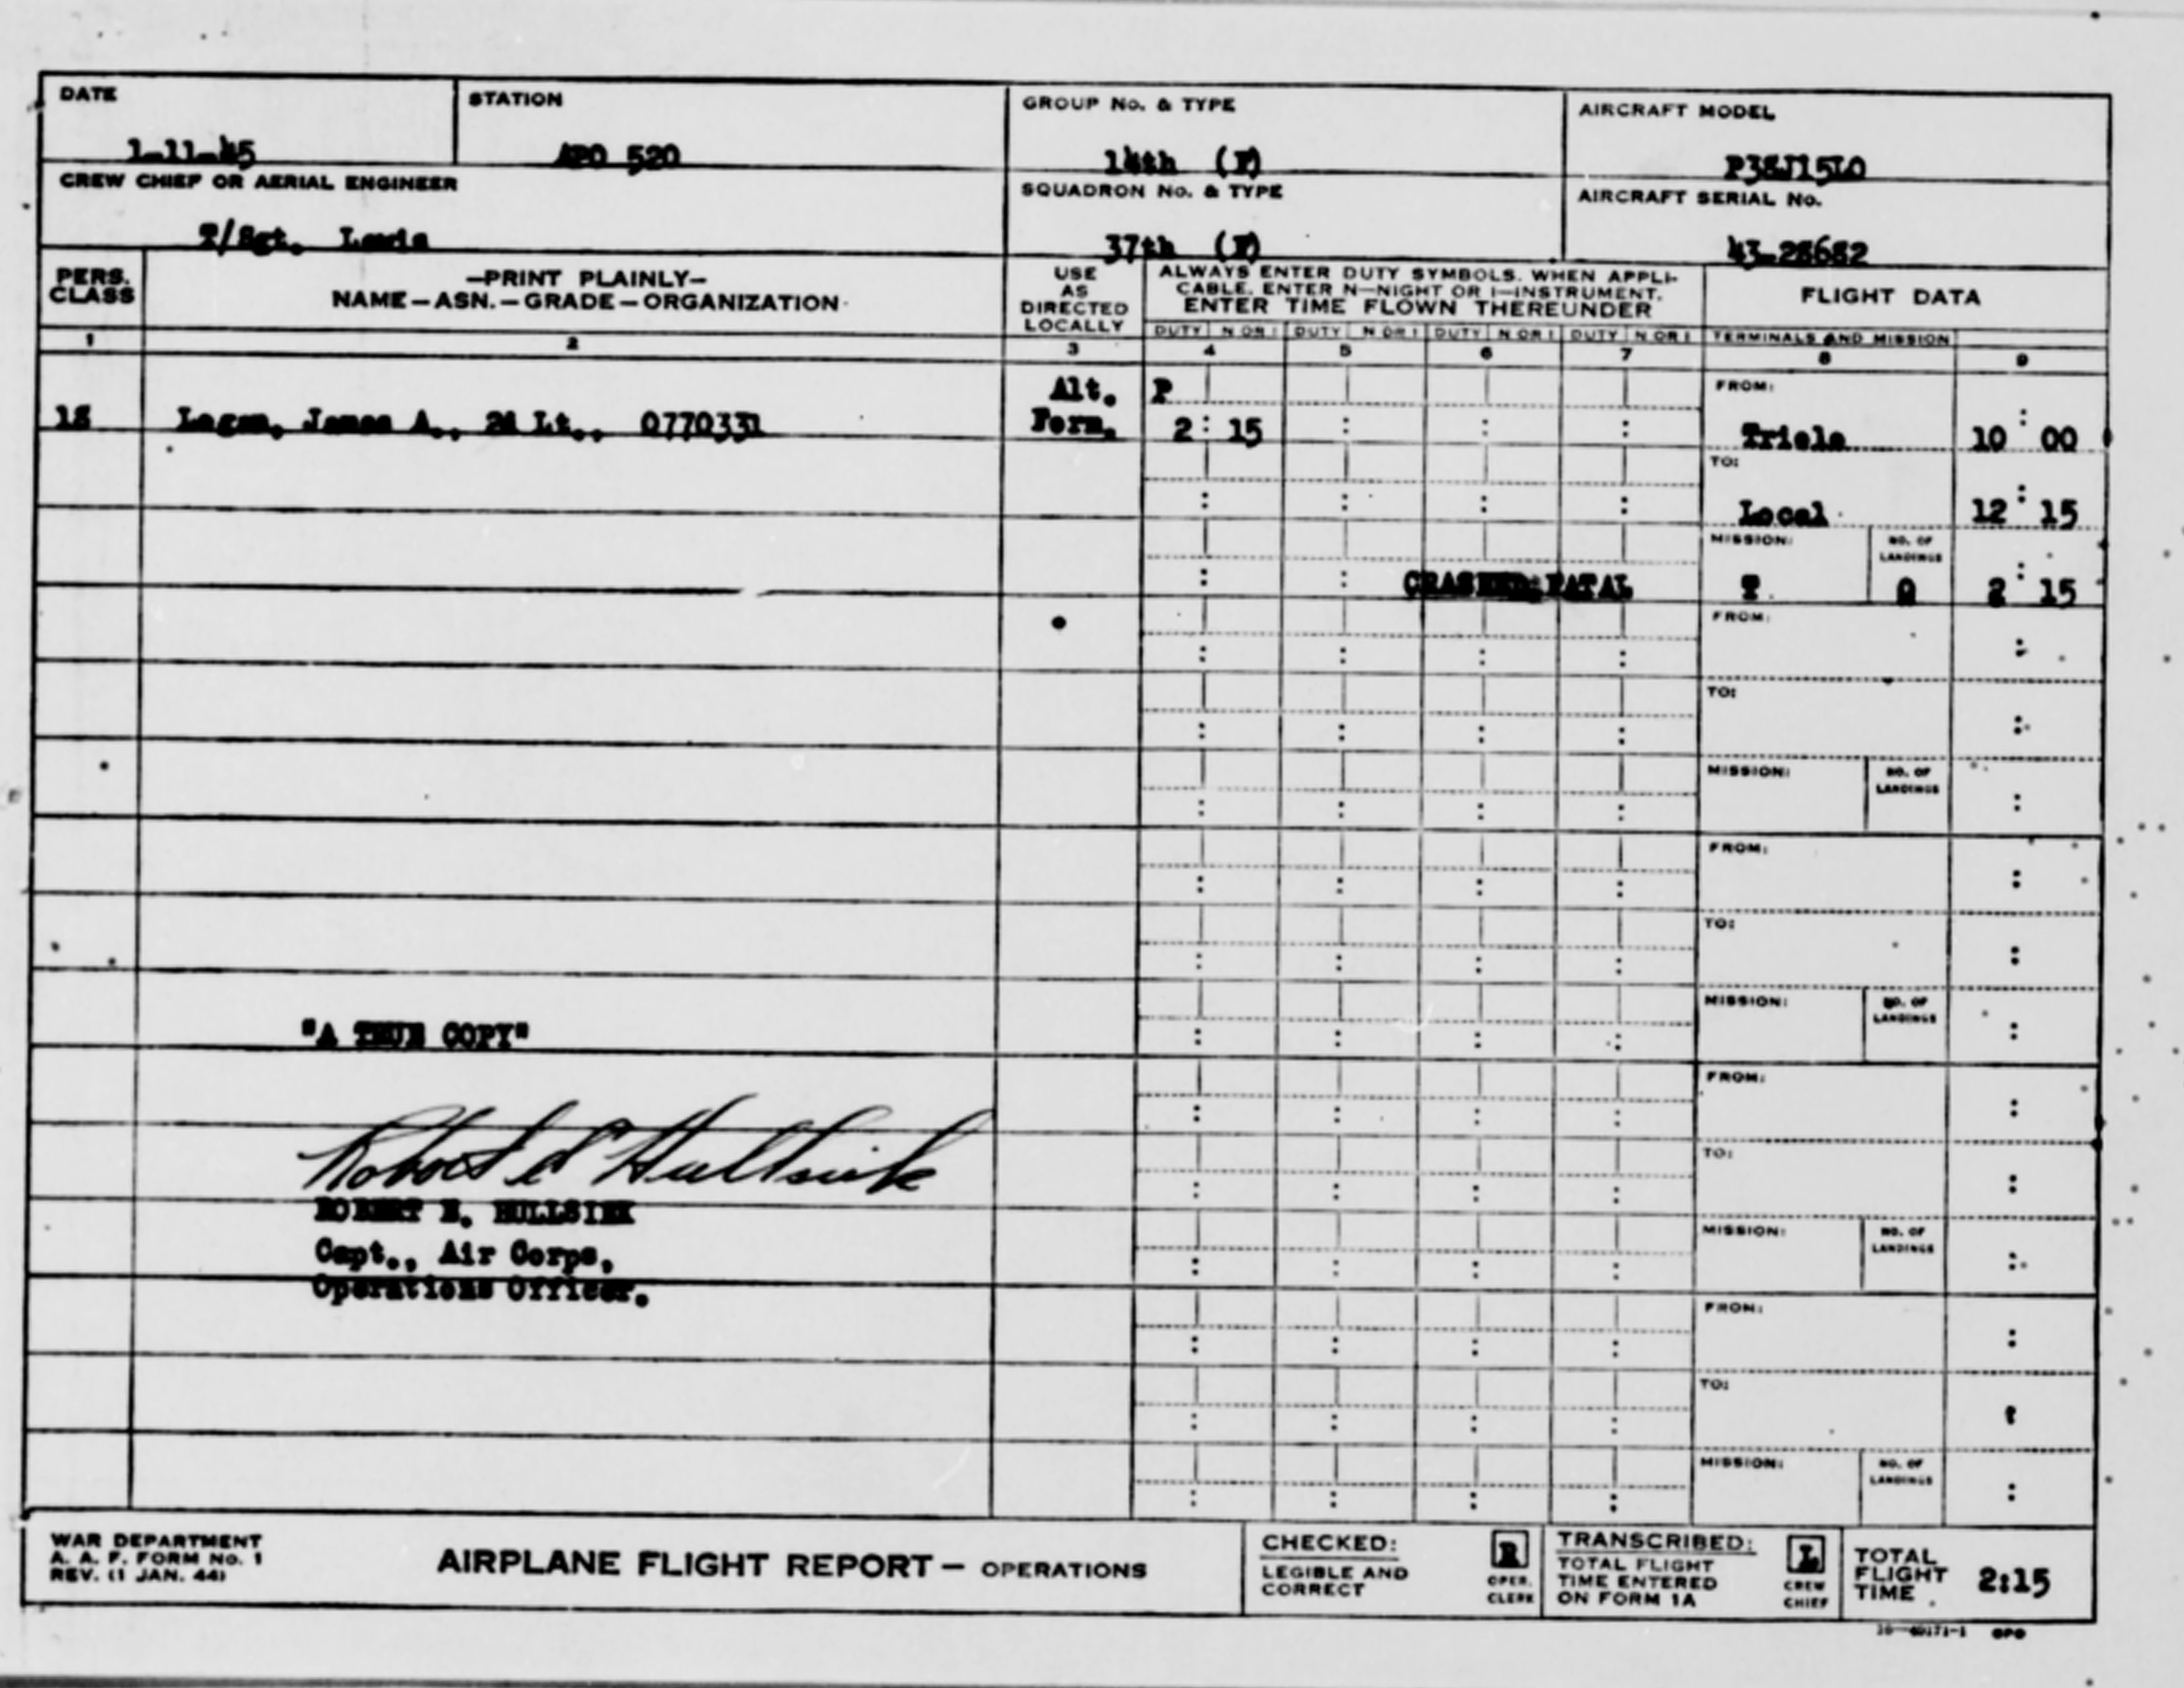 DATE
1-11-45
STATION
APO 520
GROUP No. & TYPE
14th (F)
AIRCRAFT MODEL
P38J15LO
CREW CHIEF OR AERIAL ENGINEER
T/Sgt. Lewis
SQUADRON No. & TYPE
37th (F)
AIRCRAFT SERIAL No.
43-28682
PERS. CLASS
—PRINT PLAINLY—
NAME—ASN.—GRADE—ORGANIZATION
USE AS DIRECTED LOCALLY
ALWAYS ENTER DUTY SYMBOLS. WHEN APPLI-
CABLE, ENTER N—NIGHT OR I—INSTRUMENT.
ENTER TIME FLOWN THEREUNDER
FLIGHT DATA
DUTY N OR I DUTY N OR I DUTY N OR I DUTY N OR I TERMINALS AND MISSION
1 2 3 4 5 6 7 8 9
Alt. P FROM:
18 Logan, James A., 2d Lt., 0770331 Form. 2:15 Triolo 10:00
TO:
Local 12:15
MISSION: NO. OF LANDINGS
CRASHED: FATAL T 0 2:15
FROM:
TO:
MISSION: NO. OF LANDINGS
FROM:
TO:
MISSION: NO. OF LANDINGS
"A TRUE COPY"
FROM:
Robert E Hullsiek
TO:
ROBERT E. HULLSIEK
MISSION: NO. OF LANDINGS
Capt., Air Corps,
Operations Officer.
FROM:
TO:
MISSION: NO. OF LANDINGS
WAR DEPARTMENT
A. A. F. FORM No. 1
REV. (1 JAN. 44)
AIRPLANE FLIGHT REPORT — OPERATIONS
CHECKED:
LEGIBLE AND
CORRECT
R
OPER.
CLERK
TRANSCRIBED:
TOTAL FLIGHT
TIME ENTERED
ON FORM 1A
L
CREW
CHIEF
TOTAL
FLIGHT
TIME
2:15
GPO